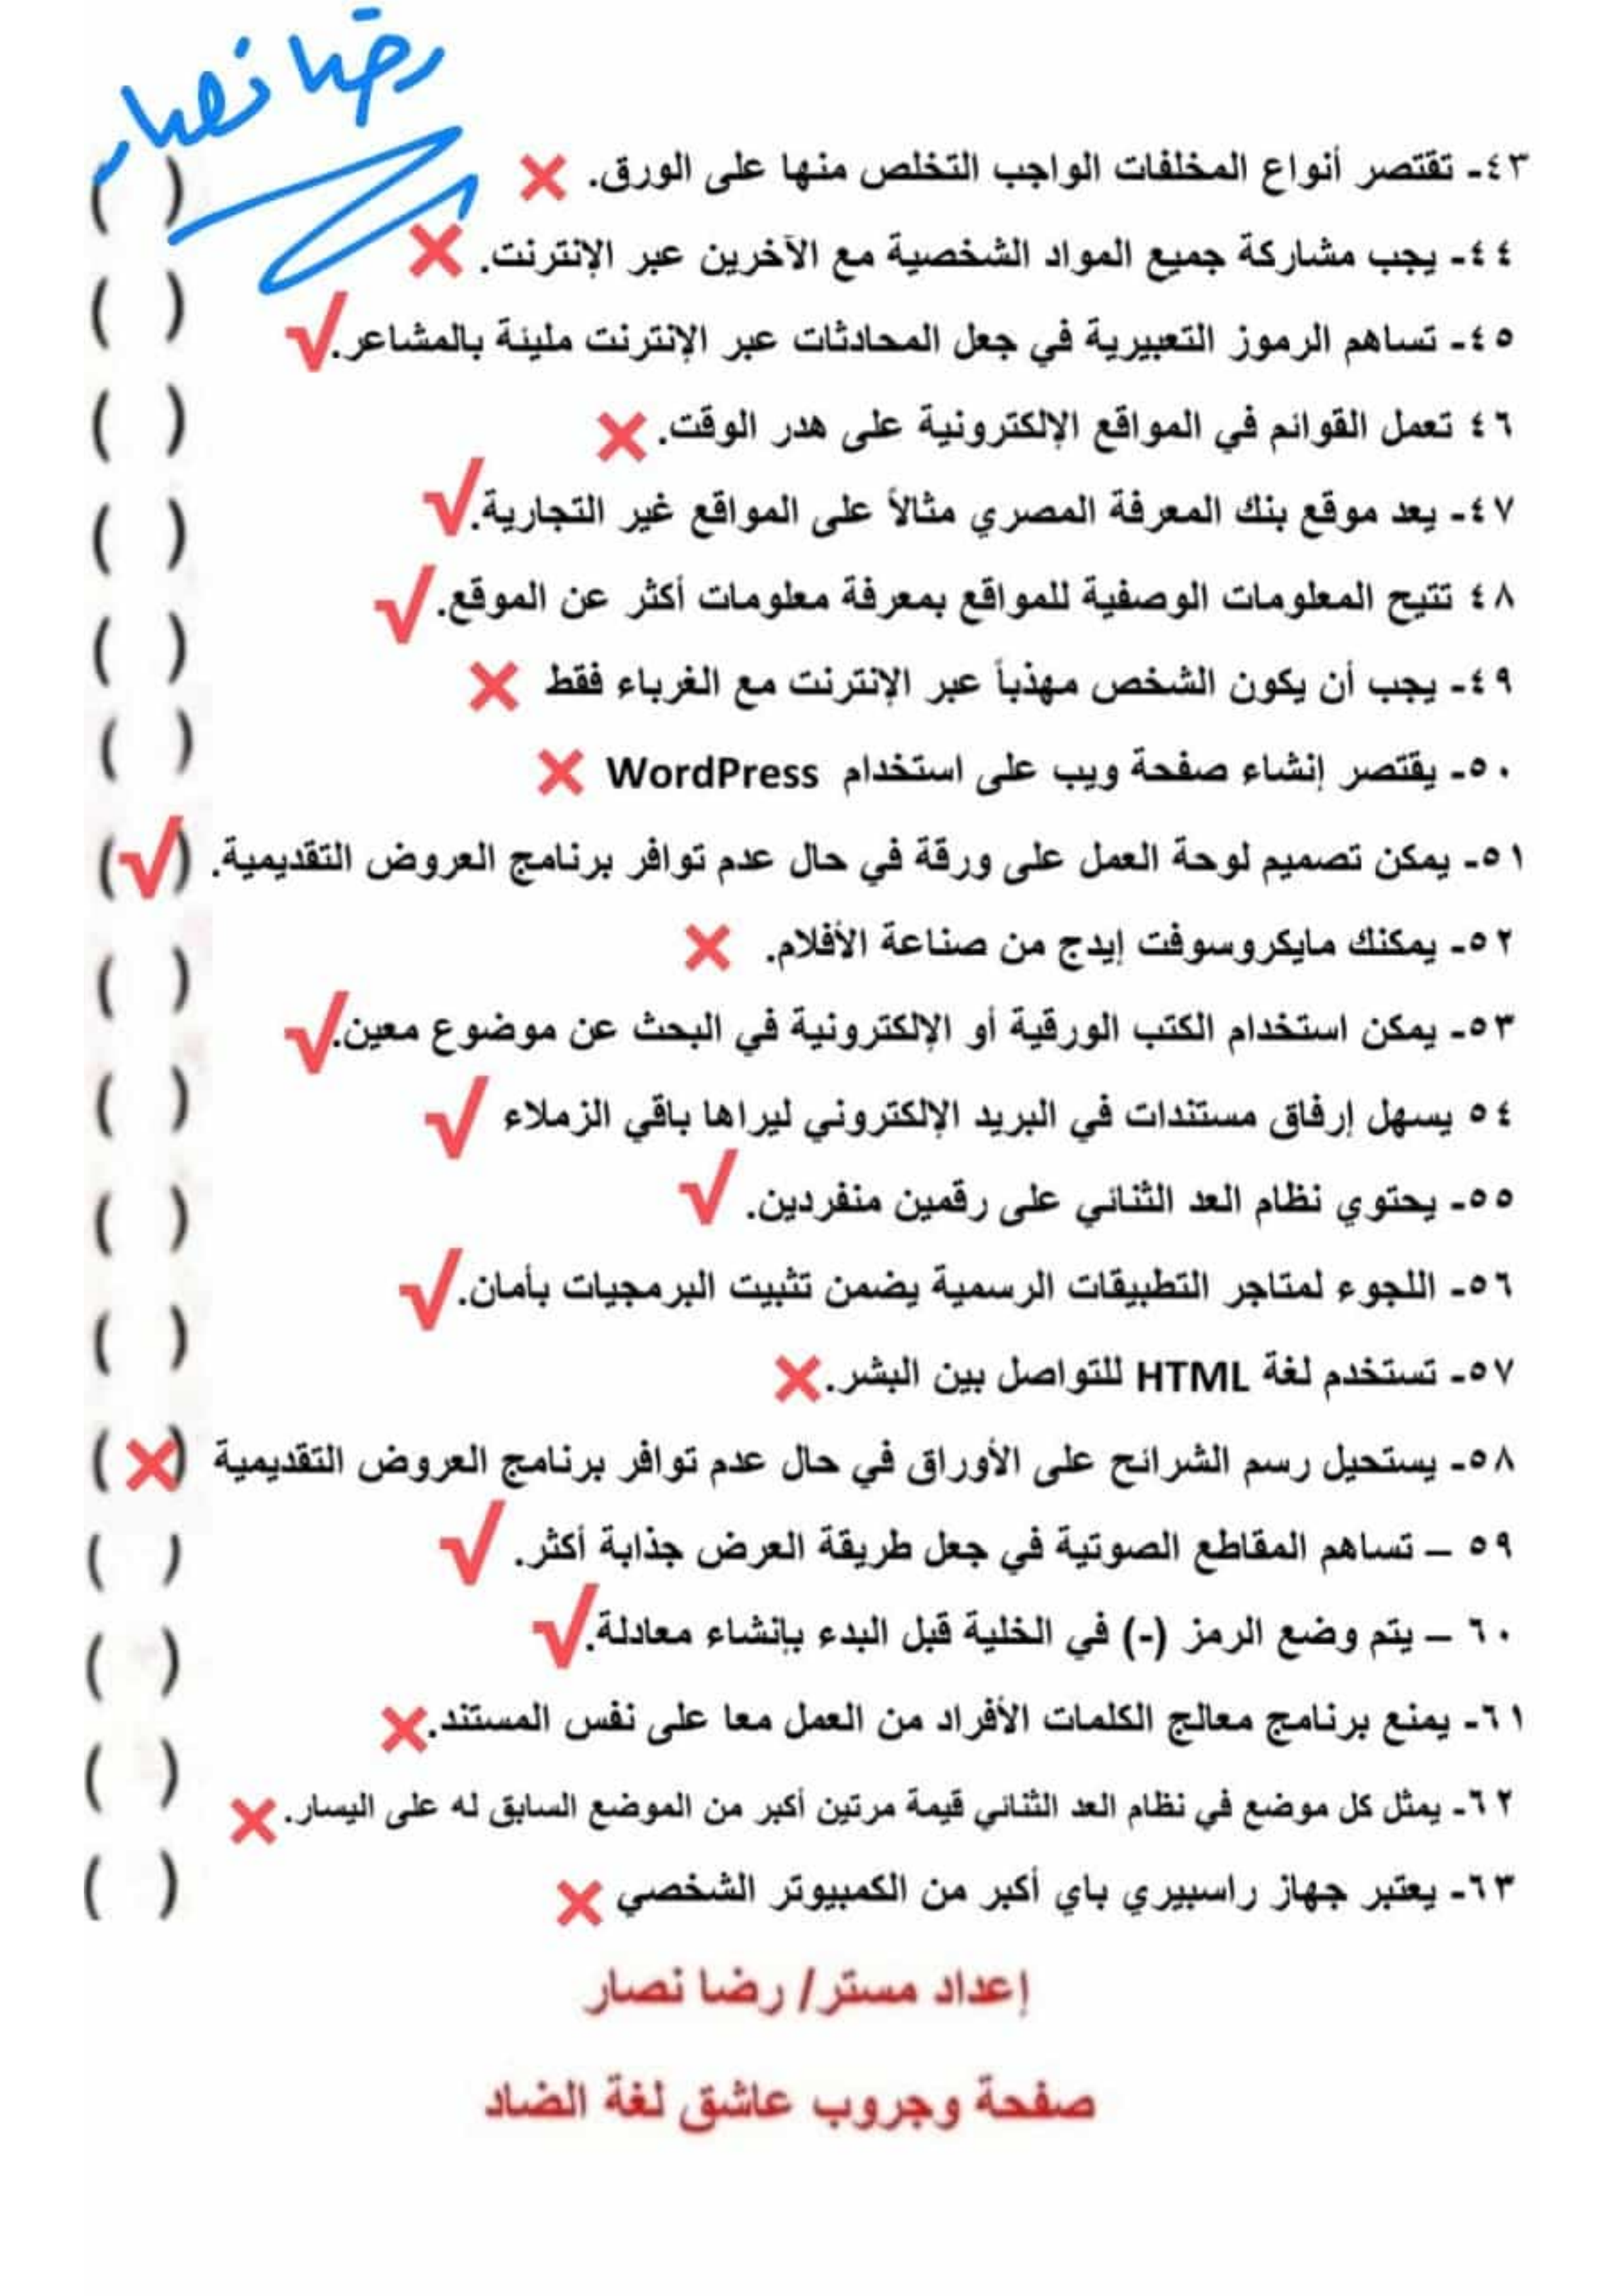 رضا نصار
٤٣- تقتصر أنواع المخلفات الواجب التخلص منها على الورق. ❌ ( )
٤٤- يجب مشاركة جميع المواد الشخصية مع الآخرين عبر الإنترنت. ❌ ( )
٤٥- تساهم الرموز التعبيرية في جعل المحادثات عبر الإنترنت مليئة بالمشاعر. √ ( )
٤٦ تعمل القوائم في المواقع الإلكترونية على هدر الوقت. ❌ ( )
٤٧- يعد موقع بنك المعرفة المصري مثالاً على المواقع غير التجارية. √ ( )
٤٨ تتيح المعلومات الوصفية للمواقع بمعرفة معلومات أكثر عن الموقع. √ ( )
٤٩- يجب أن يكون الشخص مهذباً عبر الإنترنت مع الغرباء فقط ❌ ( )
٥٠- يقتصر إنشاء صفحة ويب على استخدام WordPress ❌
٥١- يمكن تصميم لوحة العمل على ورقة في حال عدم توافر برنامج العروض التقديمية. (√)
٥٢- يمكنك مايكروسوفت إيدج من صناعة الأفلام. ❌ ( )
٥٣- يمكن استخدام الكتب الورقية أو الإلكترونية في البحث عن موضوع معين. √
٥٤ يسهل إرفاق مستندات في البريد الإلكتروني ليراها باقي الزملاء √ ( )
٥٥- يحتوي نظام العد الثنائي على رقمين منفردين. √ ( )
٥٦- اللجوء لمتاجر التطبيقات الرسمية يضمن تثبيت البرمجيات بأمان. √ ( )
٥٧- تستخدم لغة HTML للتواصل بين البشر. ❌
٥٨- يستحيل رسم الشرائح على الأوراق في حال عدم توافر برنامج العروض التقديمية (❌)
٥٩ – تساهم المقاطع الصوتية في جعل طريقة العرض جذابة أكثر. √ ( )
٦٠ – يتم وضع الرمز (-) في الخلية قبل البدء بإنشاء معادلة. √ ( )
٦١- يمنع برنامج معالج الكلمات الأفراد من العمل معا على نفس المستند. ❌ ( )
٦٢- يمثل كل موضع في نظام العد الثنائي قيمة مرتين أكبر من الموضع السابق له على اليسار. ❌
٦٣- يعتبر جهاز راسبيري باي أكبر من الكمبيوتر الشخصي ❌ ( )
إعداد مستر/ رضا نصار
صفحة وجروب عاشق لغة الضاد